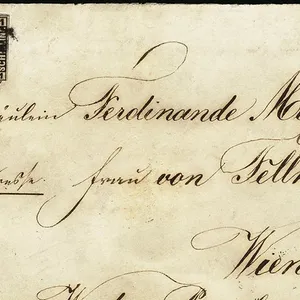 äulein Ferdinande M
esse. Frau von Felln
Wien